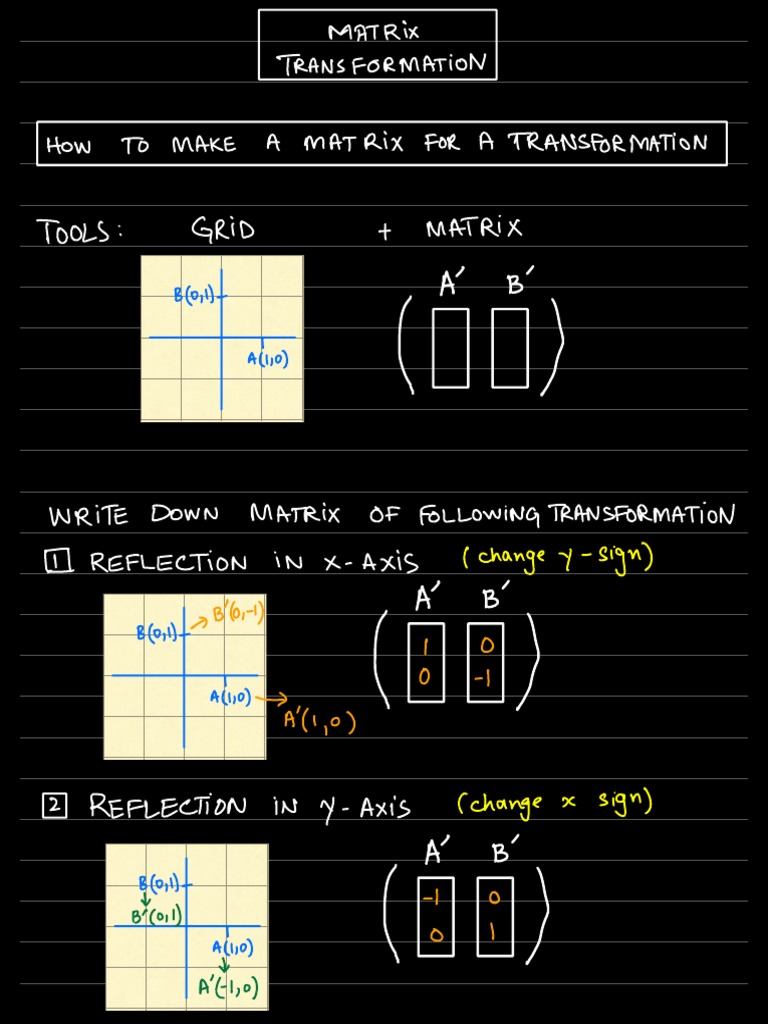 MATRIX
TRANSFORMATION
HOW TO MAKE A MATRIX FOR A TRANSFORMATION
TOOLS: GRID + MATRIX
A' B'
B(0,1)
A(1,0)
WRITE DOWN MATRIX OF FOLLOWING TRANSFORMATION
1 REFLECTION IN X-AXIS (change y-sign)
A' B'
B(0,1) → B'(0,-1)
1 0
0 -1
A(1,0) →
A'(1,0)
2 REFLECTION IN Y-AXIS (change x sign)
A' B'
B(0,1)
-1 0
B'(0,1)
0 1
A(1,0)
A'(-1,0)